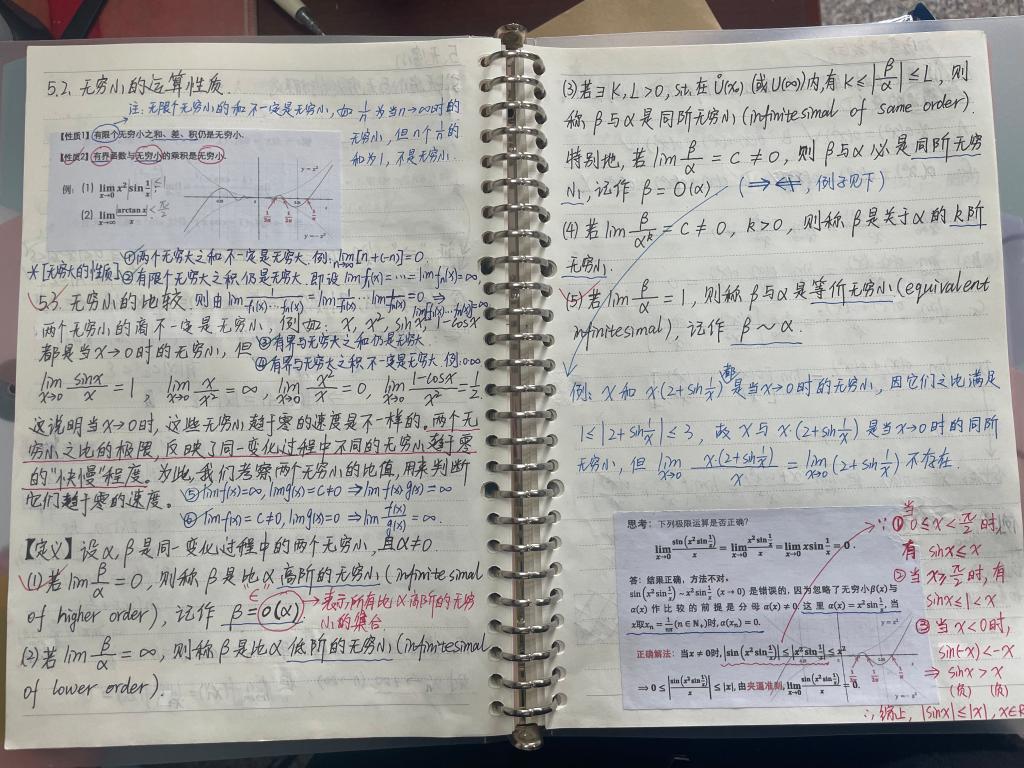 5.2. 无穷小的运算性质.
注: 无限个无穷小的和不一定是无穷小, 如 1/n 为当n→∞时的
无穷小, 但n个1/n的
和为1, 不是无穷小.
【性质1】有限个无穷小之和、差、积仍是无穷小.
【性质2】有界函数与无穷小的乘积是无穷小.
例: (1) lim_{x→0} x²|sin 1/x| ≤1
(2) lim_{x→∞} |arctan x|/x <π/2
y=x²
y=-x²
*[无穷大的性质] ①两个无穷大之和不一定是无穷大. 例: lim[n+(-n)]=0.
②有限个无穷大之积仍是无穷大. 即设 limf₁(x)=…=limfₙ(x)=∞
5.3. 无穷小的比较.
则由lim 1/(f₁(x)…fₙ(x)) = lim 1/f₁(x) … lim 1/fₙ(x) = 0 ⇒ limf₁(x)…fₙ(x)=∞
两个无穷小的商不一定是无穷小, 例如: x, x², sinx, 1-cosx
③有界与无穷大之和仍是无穷大.
都是当x→0时的无穷小, 但
④有界与无穷大之积不一定是无穷大. 例: 0·∞
lim_{x→0} sinx/x = 1, lim_{x→0} x/x² = ∞, lim_{x→0} x²/x = 0, lim_{x→0} (1-cosx)/x² = 1/2.
这说明当x→0时, 这些无穷小趋于零的速度是不一样的. 两个无
穷小之比的极限, 反映了同一变化过程中不同的无穷小趋于零
的"快慢"程度. 为此, 我们考察两个无穷小的比值, 用来判断
它们趋于零的速度.
⑤limf(x)=∞, limg(x)=C≠0 ⇒limf(x)g(x)=∞
⑥limf(x)=C≠0, limg(x)=0 ⇒lim f(x)/g(x) = ∞.
【定义】设α, β是同一变化过程中的两个无穷小, 且α≠0.
(1)若lim β/α = 0, 则称β是比α高阶的无穷小(infinitesimal
of higher order), 记作 β=o(α)
∈
→表示所有比α高阶的无穷
小的集合
(2)若lim β/α = ∞, 则称β是比α低阶的无穷小(infinitesimal
of lower order).
(3)若∃K, L>0, s.t.在Ů(x₀)(或U(∞))内, 有K≤|β/α|≤L, 则
称β与α是同阶无穷小(infinitesimal of same order).
特别地, 若lim β/α = C ≠ 0, 则β与α必是同阶无穷
小, 记作 β=O(α) (⇒⇍, 例子见下)
(4)若lim β/α^k = C ≠ 0, k>0, 则称β是关于α的k阶
无穷小.
(5)若lim β/α = 1, 则称β与α是等价无穷小(equivalent
infinitesimal), 记作 β~α.
例: x和x(2+sin 1/x)都是当x→0时的无穷小, 因它们之比满足
1≤|2+sin 1/x|≤3, 故x与x·(2+sin 1/x)是当x→0时的同阶
无穷小, 但 lim_{x→0} x·(2+sin 1/x)/x = lim_{x→0}(2+sin 1/x)不存在.
思考: 下列极限运算是否正确?
lim_{x→0} sin(x² sin 1/x)/x = lim_{x→0} x² sin 1/x / x = lim_{x→0} x sin 1/x = 0.
答: 结果正确, 方法不对.
sin(x² sin 1/x) ~ x² sin 1/x (x→0) 是错误的, 因为忽略了无穷小β(x)与
α(x) 作比较的前提是分母 α(x)≠0. 这里 α(x)=x² sin 1/x, 当
x取xₙ = 1/nπ (n∈N₊)时, α(xₙ)=0.
正确解法: 当x≠0时, |sin(x² sin 1/x)| ≤ |x² sin 1/x| ≤ x²
⇒ 0 ≤ |sin(x² sin 1/x)/x| ≤ |x|, 由夹逼准则, lim_{x→0} sin(x² sin 1/x)/x = 0.
y=x²
y=-x²
当
∵①0≤x<π/2时,
有 sinx≤x
②当x≥π/2时, 有
sinx≤1<x
③当x<0时,
sin(-x)<-x
⇒ sinx > x
(负) (负)
∴综上, |sinx|≤|x|, x∈R